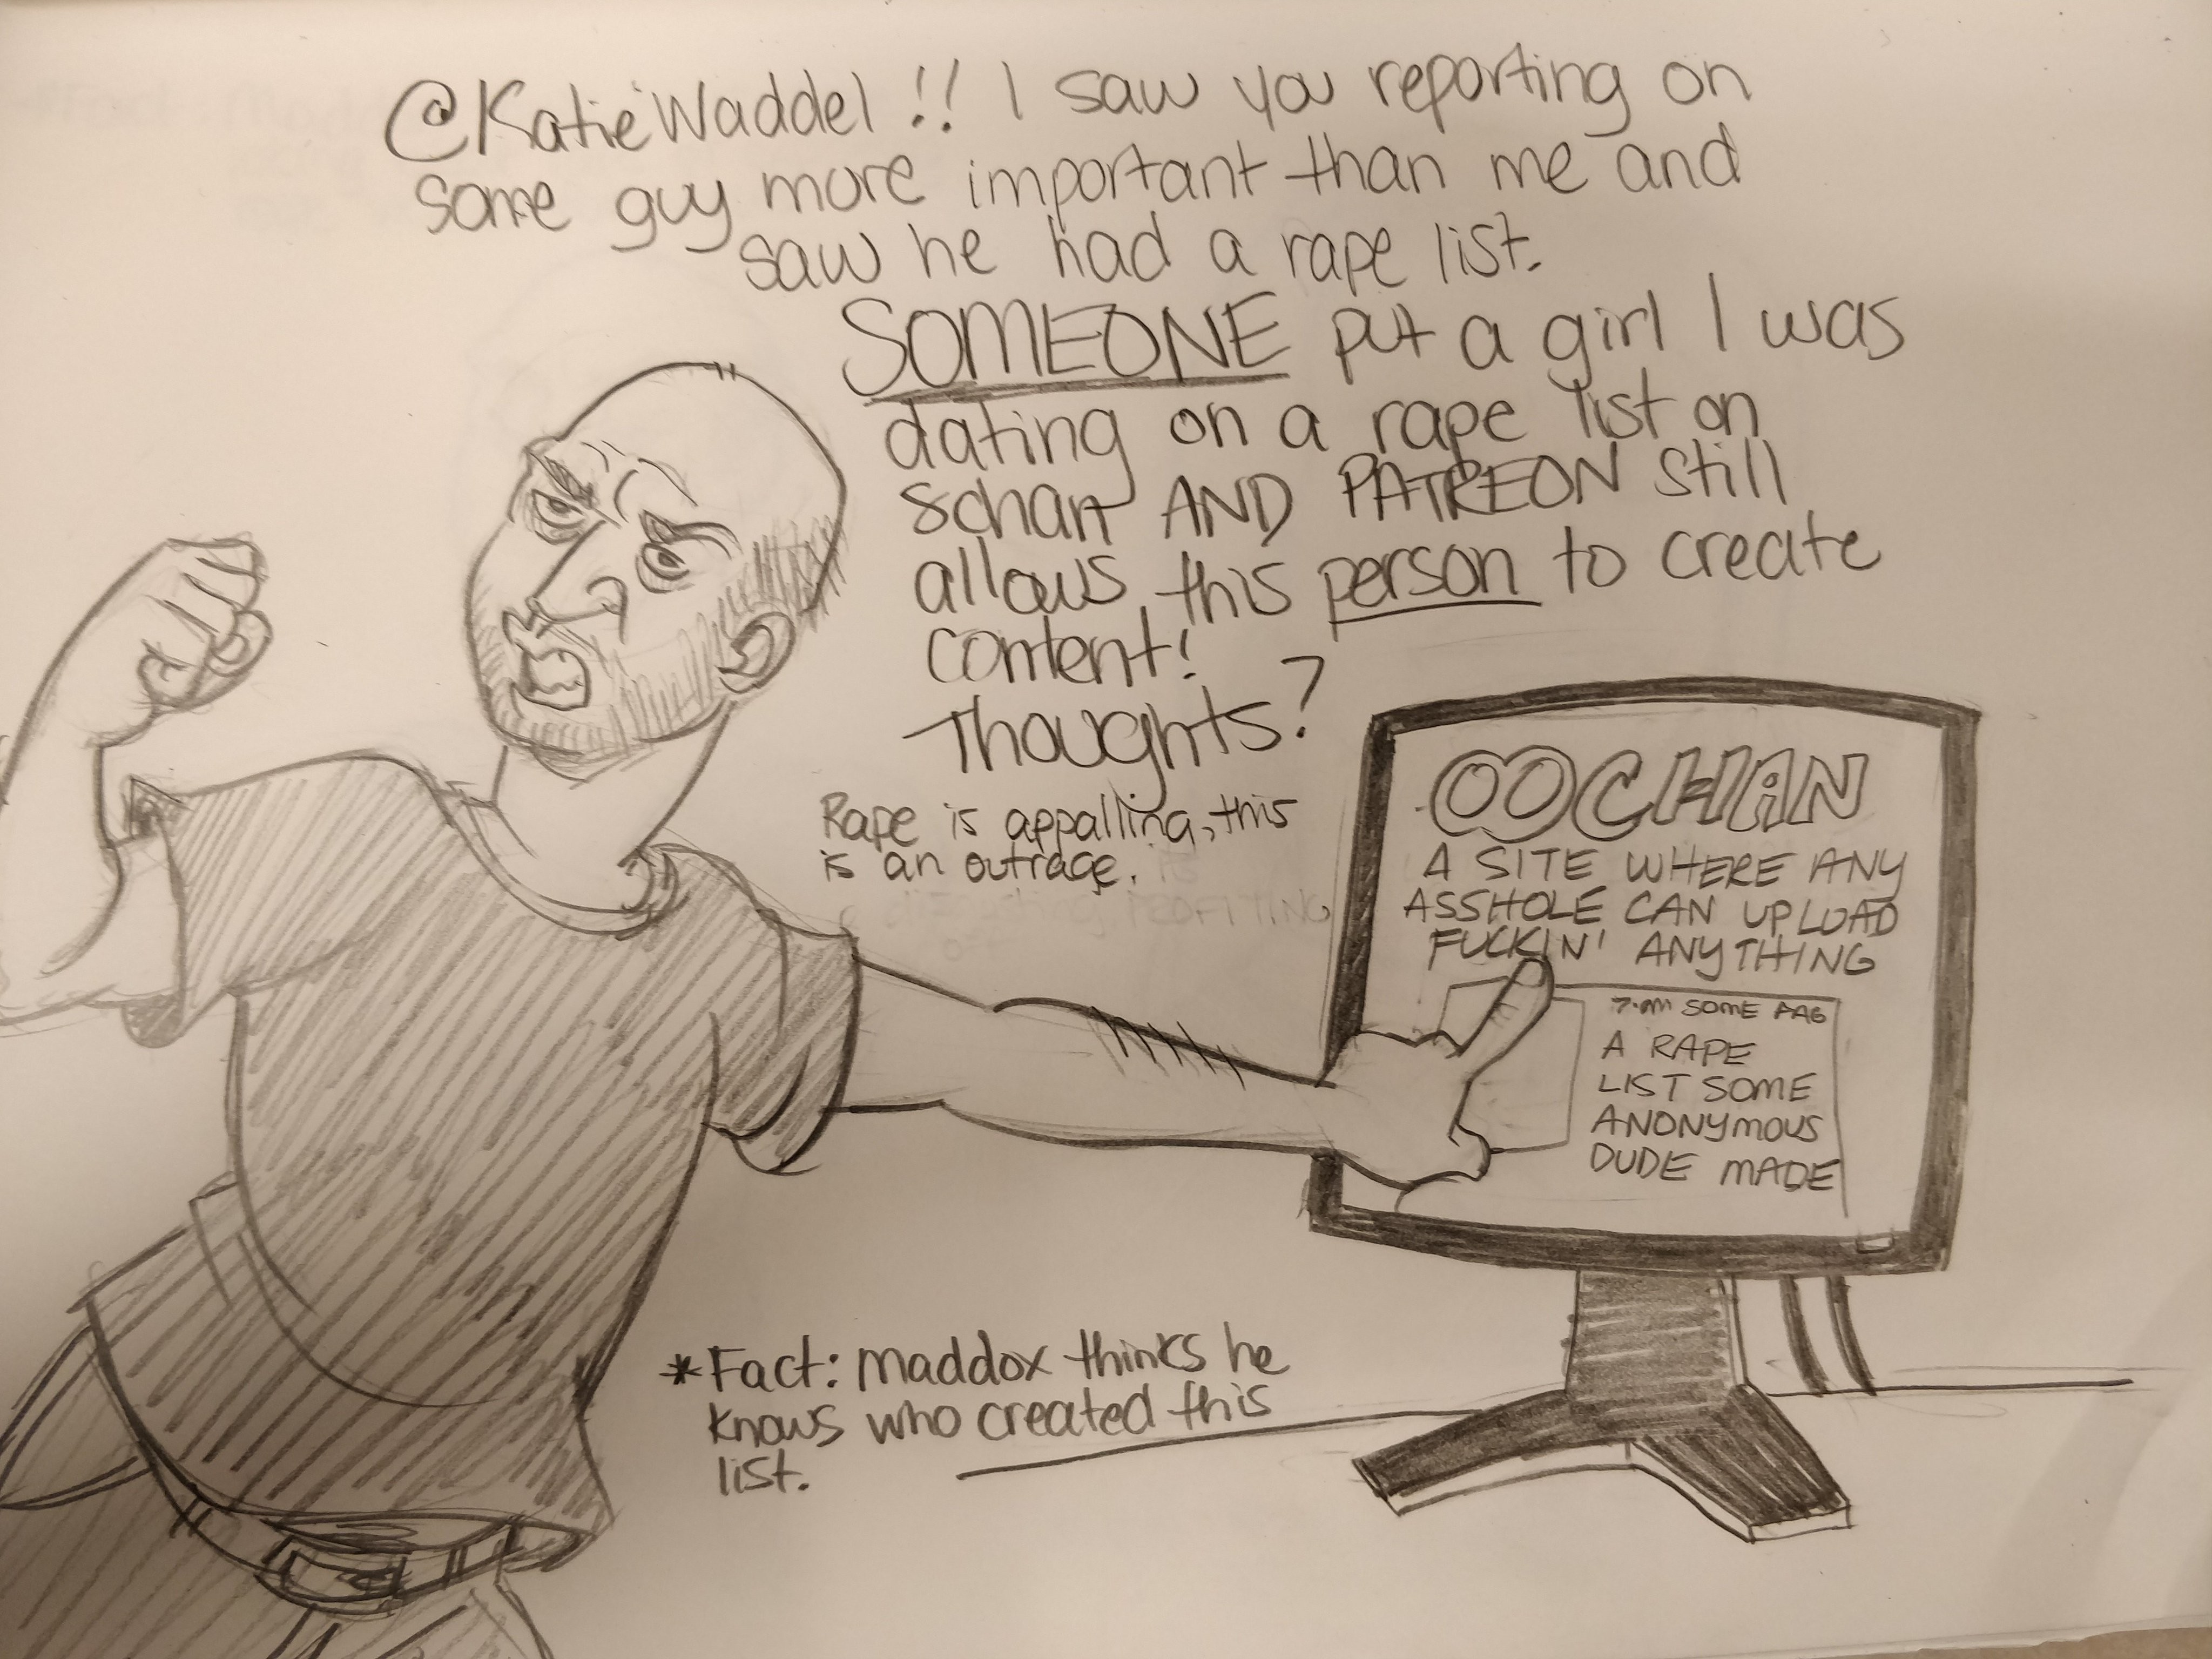 @KatieWaddel!! I saw you reporting on
some guy more important than me and
saw he had a rape list.
SOMEONE put a girl I was
dating on a rape list on
8chan AND PATREON still
allows this person to create
content!
Thoughts?
Rape is appalling, this
is an outrage.
OOCHAN
A SITE WHERE ANY
ASSHOLE CAN UPLOAD
FUCKIN' ANYTHING
SOME FAG
A RAPE
LIST SOME
ANONYMOUS
DUDE MADE
*Fact: maddox thinks he
knows who created this
list.